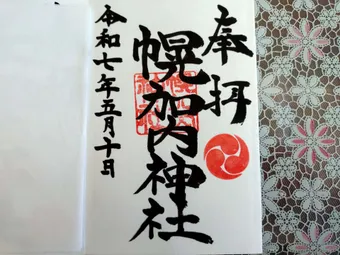 奉拝
幌加内神社
令和七年五月十日